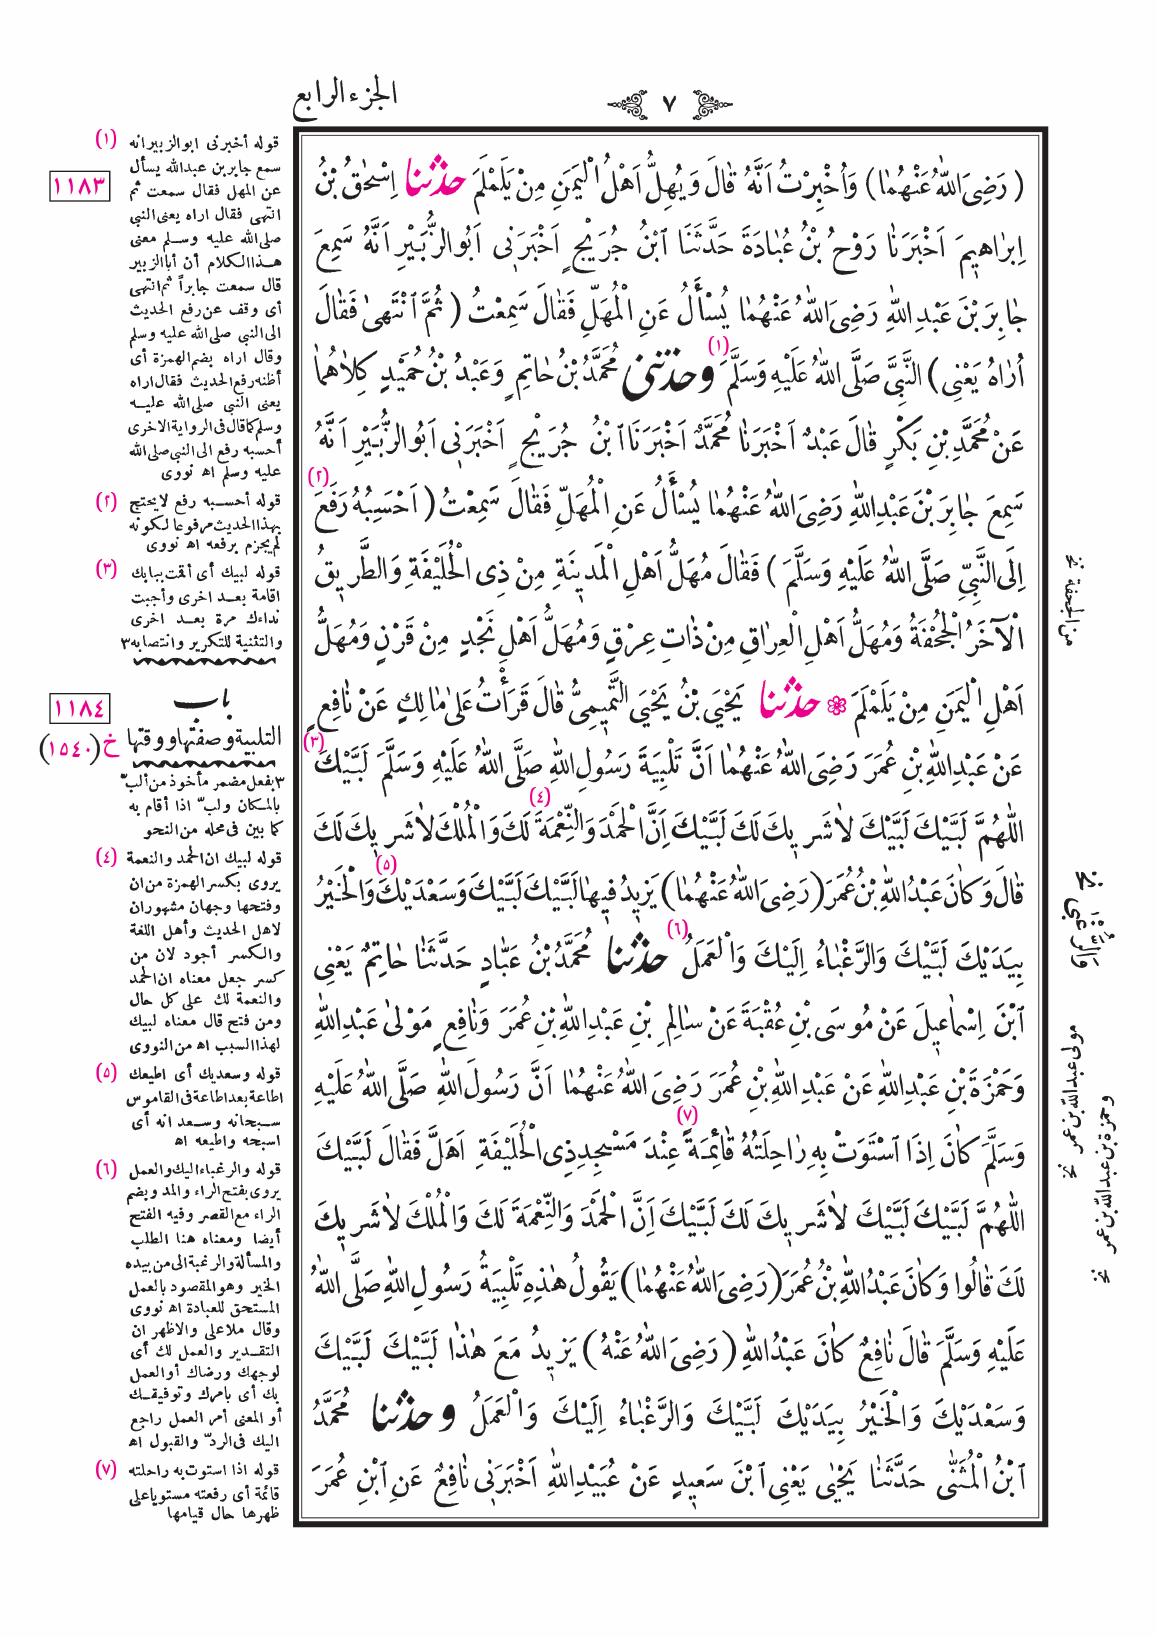 الجزء الرابع
٧
( رَضِىَ اللّٰهُ عَنْهُمَا ) وَأُخْبِرْتُ أَنَّهُ قَالَ وَيُهِلُّ أَهْلُ الْيَمَنِ مِنْ يَلَمْلَمَ حَدَّثَنَا إِسْحٰقُ بْنُ
إِبْرَاهِيمَ أَخْبَرَنَا رَوْحُ بْنُ عُبَادَةَ حَدَّثَنَا ابْنُ جُرَيْجٍ أَخْبَرَنِى أَبُو الزُّبَيْرِ أَنَّهُ سَمِعَ
جَابِرَ بْنَ عَبْدِ اللّٰهِ رَضِىَ اللّٰهُ عَنْهُمَا يُسْأَلُ عَنِ الْمُهَلِّ فَقَالَ سَمِعْتُ ( ثُمَّ انْتَهٰى فَقَالَ
أُرَاهُ يَعْنِى ) النَّبِىَّ صَلَّى اللّٰهُ عَلَيْهِ وَسَلَّمَ (١) وحدثنى مُحَمَّدُ بْنُ حَاتِمٍ وَعَبْدُ بْنُ حُمَيْدٍ كِلَاهُمَا
عَنْ مُحَمَّدِ بْنِ بَكْرٍ قَالَ عَبْدٌ أَخْبَرَنَا مُحَمَّدٌ أَخْبَرَنَا ابْنُ جُرَيْجٍ أَخْبَرَنِى أَبُو الزُّبَيْرِ أَنَّهُ
سَمِعَ جَابِرَ بْنَ عَبْدِ اللّٰهِ رَضِىَ اللّٰهُ عَنْهُمَا يُسْأَلُ عَنِ الْمُهَلِّ فَقَالَ سَمِعْتُ ( أَحْسِبُهُ رَفَعَ (٢)
إِلَى النَّبِىِّ صَلَّى اللّٰهُ عَلَيْهِ وَسَلَّمَ ) فَقَالَ مُهَلُّ أَهْلِ الْمَدِينَةِ مِنْ ذِى الْحُلَيْفَةِ وَالطَّرِيقُ
الْآخَرُ الْجُحْفَةُ وَمُهَلُّ أَهْلِ الْعِرَاقِ مِنْ ذَاتِ عِرْقٍ وَمُهَلُّ أَهْلِ نَجْدٍ مِنْ قَرْنٍ وَمُهَلُّ
أَهْلِ الْيَمَنِ مِنْ يَلَمْلَمَ ۞ حدثنا يَحْيَى بْنُ يَحْيَى التَّمِيمِىُّ قَالَ قَرَأْتُ عَلَى مَالِكٍ عَنْ نَافِعٍ
عَنْ عَبْدِ اللّٰهِ بْنِ عُمَرَ رَضِىَ اللّٰهُ عَنْهُمَا أَنَّ تَلْبِيَةَ رَسُولِ اللّٰهِ صَلَّى اللّٰهُ عَلَيْهِ وَسَلَّمَ لَبَّيْكَ (٣)
اللّٰهُمَّ لَبَّيْكَ لَبَّيْكَ لَا شَرِيكَ لَكَ لَبَّيْكَ إِنَّ الْحَمْدَ وَالنِّعْمَةَ (٤) لَكَ وَالْمُلْكَ لَا شَرِيكَ لَكَ
قَالَ وَكَانَ عَبْدُ اللّٰهِ بْنُ عُمَرَ ( رَضِىَ اللّٰهُ عَنْهُمَا ) يَزِيدُ فِيهَا لَبَّيْكَ لَبَّيْكَ وَسَعْدَيْكَ (٥) وَالْخَيْرُ
بِيَدَيْكَ لَبَّيْكَ وَالرَّغْبَاءُ إِلَيْكَ وَالْعَمَلُ (٦) حدثنا مُحَمَّدُ بْنُ عَبَّادٍ حَدَّثَنَا حَاتِمٌ يَعْنِى
ابْنَ إِسْمَاعِيلَ عَنْ مُوسَى بْنِ عُقْبَةَ عَنْ سَالِمِ بْنِ عَبْدِ اللّٰهِ بْنِ عُمَرَ وَنَافِعٍ مَوْلَى عَبْدِ اللّٰهِ
وَحَمْزَةَ بْنِ عَبْدِ اللّٰهِ عَنْ عَبْدِ اللّٰهِ بْنِ عُمَرَ رَضِىَ اللّٰهُ عَنْهُمَا أَنَّ رَسُولَ اللّٰهِ صَلَّى اللّٰهُ عَلَيْهِ
وَسَلَّمَ كَانَ إِذَا اسْتَوَتْ بِهِ رَاحِلَتُهُ قَائِمَةً (٧) عِنْدَ مَسْجِدِ ذِى الْحُلَيْفَةِ أَهَلَّ فَقَالَ لَبَّيْكَ
اللّٰهُمَّ لَبَّيْكَ لَبَّيْكَ لَا شَرِيكَ لَكَ لَبَّيْكَ إِنَّ الْحَمْدَ وَالنِّعْمَةَ لَكَ وَالْمُلْكَ لَا شَرِيكَ
لَكَ قَالُوا وَكَانَ عَبْدُ اللّٰهِ بْنُ عُمَرَ ( رَضِىَ اللّٰهُ عَنْهُمَا ) يَقُولُ هٰذِهِ تَلْبِيَةُ رَسُولِ اللّٰهِ صَلَّى اللّٰهُ
عَلَيْهِ وَسَلَّمَ قَالَ نَافِعٌ كَانَ عَبْدُ اللّٰهِ ( رَضِىَ اللّٰهُ عَنْهُ ) يَزِيدُ مَعَ هٰذَا لَبَّيْكَ لَبَّيْكَ
وَسَعْدَيْكَ وَالْخَيْرُ بِيَدَيْكَ لَبَّيْكَ وَالرَّغْبَاءُ إِلَيْكَ وَالْعَمَلُ وحدثنا مُحَمَّدُ
ابْنُ الْمُثَنَّى حَدَّثَنَا يَحْيٰى يَعْنِى ابْنَ سَعِيدٍ عَنْ عُبَيْدِ اللّٰهِ أَخْبَرَنِى نَافِعٌ عَنِ ابْنِ عُمَرَ
من الجحفة نخ
وَالرُّغْبَى نخ
مولى عبدالله بن عمر نخ
وحمزة بن عبدالله بن عمر نخ
(١) قوله أخبرنى ابو الزبير انه
سمع جابر بن عبدالله يسأل
١١٨٣
عن المهل فقال سمعت ثم
انتهى فقال اراه يعنى النبى
صلى الله عليه وسلم معنى
هذا الكلام أن أبا الزبير
قال سمعت جابراً ثم انتهى
أى وقف عن رفع الحديث
الى النبى صلى الله عليه وسلم
وقال اراه بضم الهمزة أى
أظنه رفع الحديث فقال اراه
يعنى النبى صلى الله عليه
وسلم كما قال فى الرواية الاخرى
أحسبه رفع الى النبى صلى الله
عليه وسلم اه نووى
(٢) قوله أحسبه رفع لا يحتج
بهذا الحديث مرفوعا لكونه
لم يجزم برفعه اه نووى
(٣) قوله لبيك أى أقمت ببابك
اقامة بعد اخرى وأجبت
نداءك مرة بعد اخرى
والتثنية للتكرير وانتصابه ٣
باب
١١٨٤
التلبية وصفتها ووقتها
خ (١٥٤٠)
٣ بفعل مضمر مأخوذ من ألبّ
بالمكان ولبّ اذا أقام به
كما بين فى محله من النحو
(٤) قوله لبيك ان الحمد والنعمة
يروى بكسر الهمزة من ان
وفتحها وجهان مشهوران
لاهل الحديث وأهل اللغة
والكسر أجود لان من
كسر جعل معناه ان الحمد
والنعمة لك على كل حال
ومن فتح قال معناه لبيك
لهذا السبب اه من النووى
(٥) قوله وسعديك أى اطيعك
اطاعة بعد اطاعة فى القاموس
سبحانه وسعد انه أى
اسبحه واطيعه اه
(٦) قوله والرغباء اليك والعمل
يروى بفتح الراء والمد وبضم
الراء مع القصر وفيه الفتح
أيضا ومعناه هنا الطلب
والمسألة والرغبة الى من بيده
الخير وهو المقصود بالعمل
المستحق للعبادة اه نووى
وقال ملا على والاظهر ان
التقدير والعمل لك أى
لوجهك ورضاك أو العمل
بك أى بامرك وتوفيقك
أو المعنى أمر العمل راجع
اليك فى الردّ والقبول اه
(٧) قوله اذا استوت به راحلته
قائمة أى رفعته مستويا على
ظهرها حال قيامها